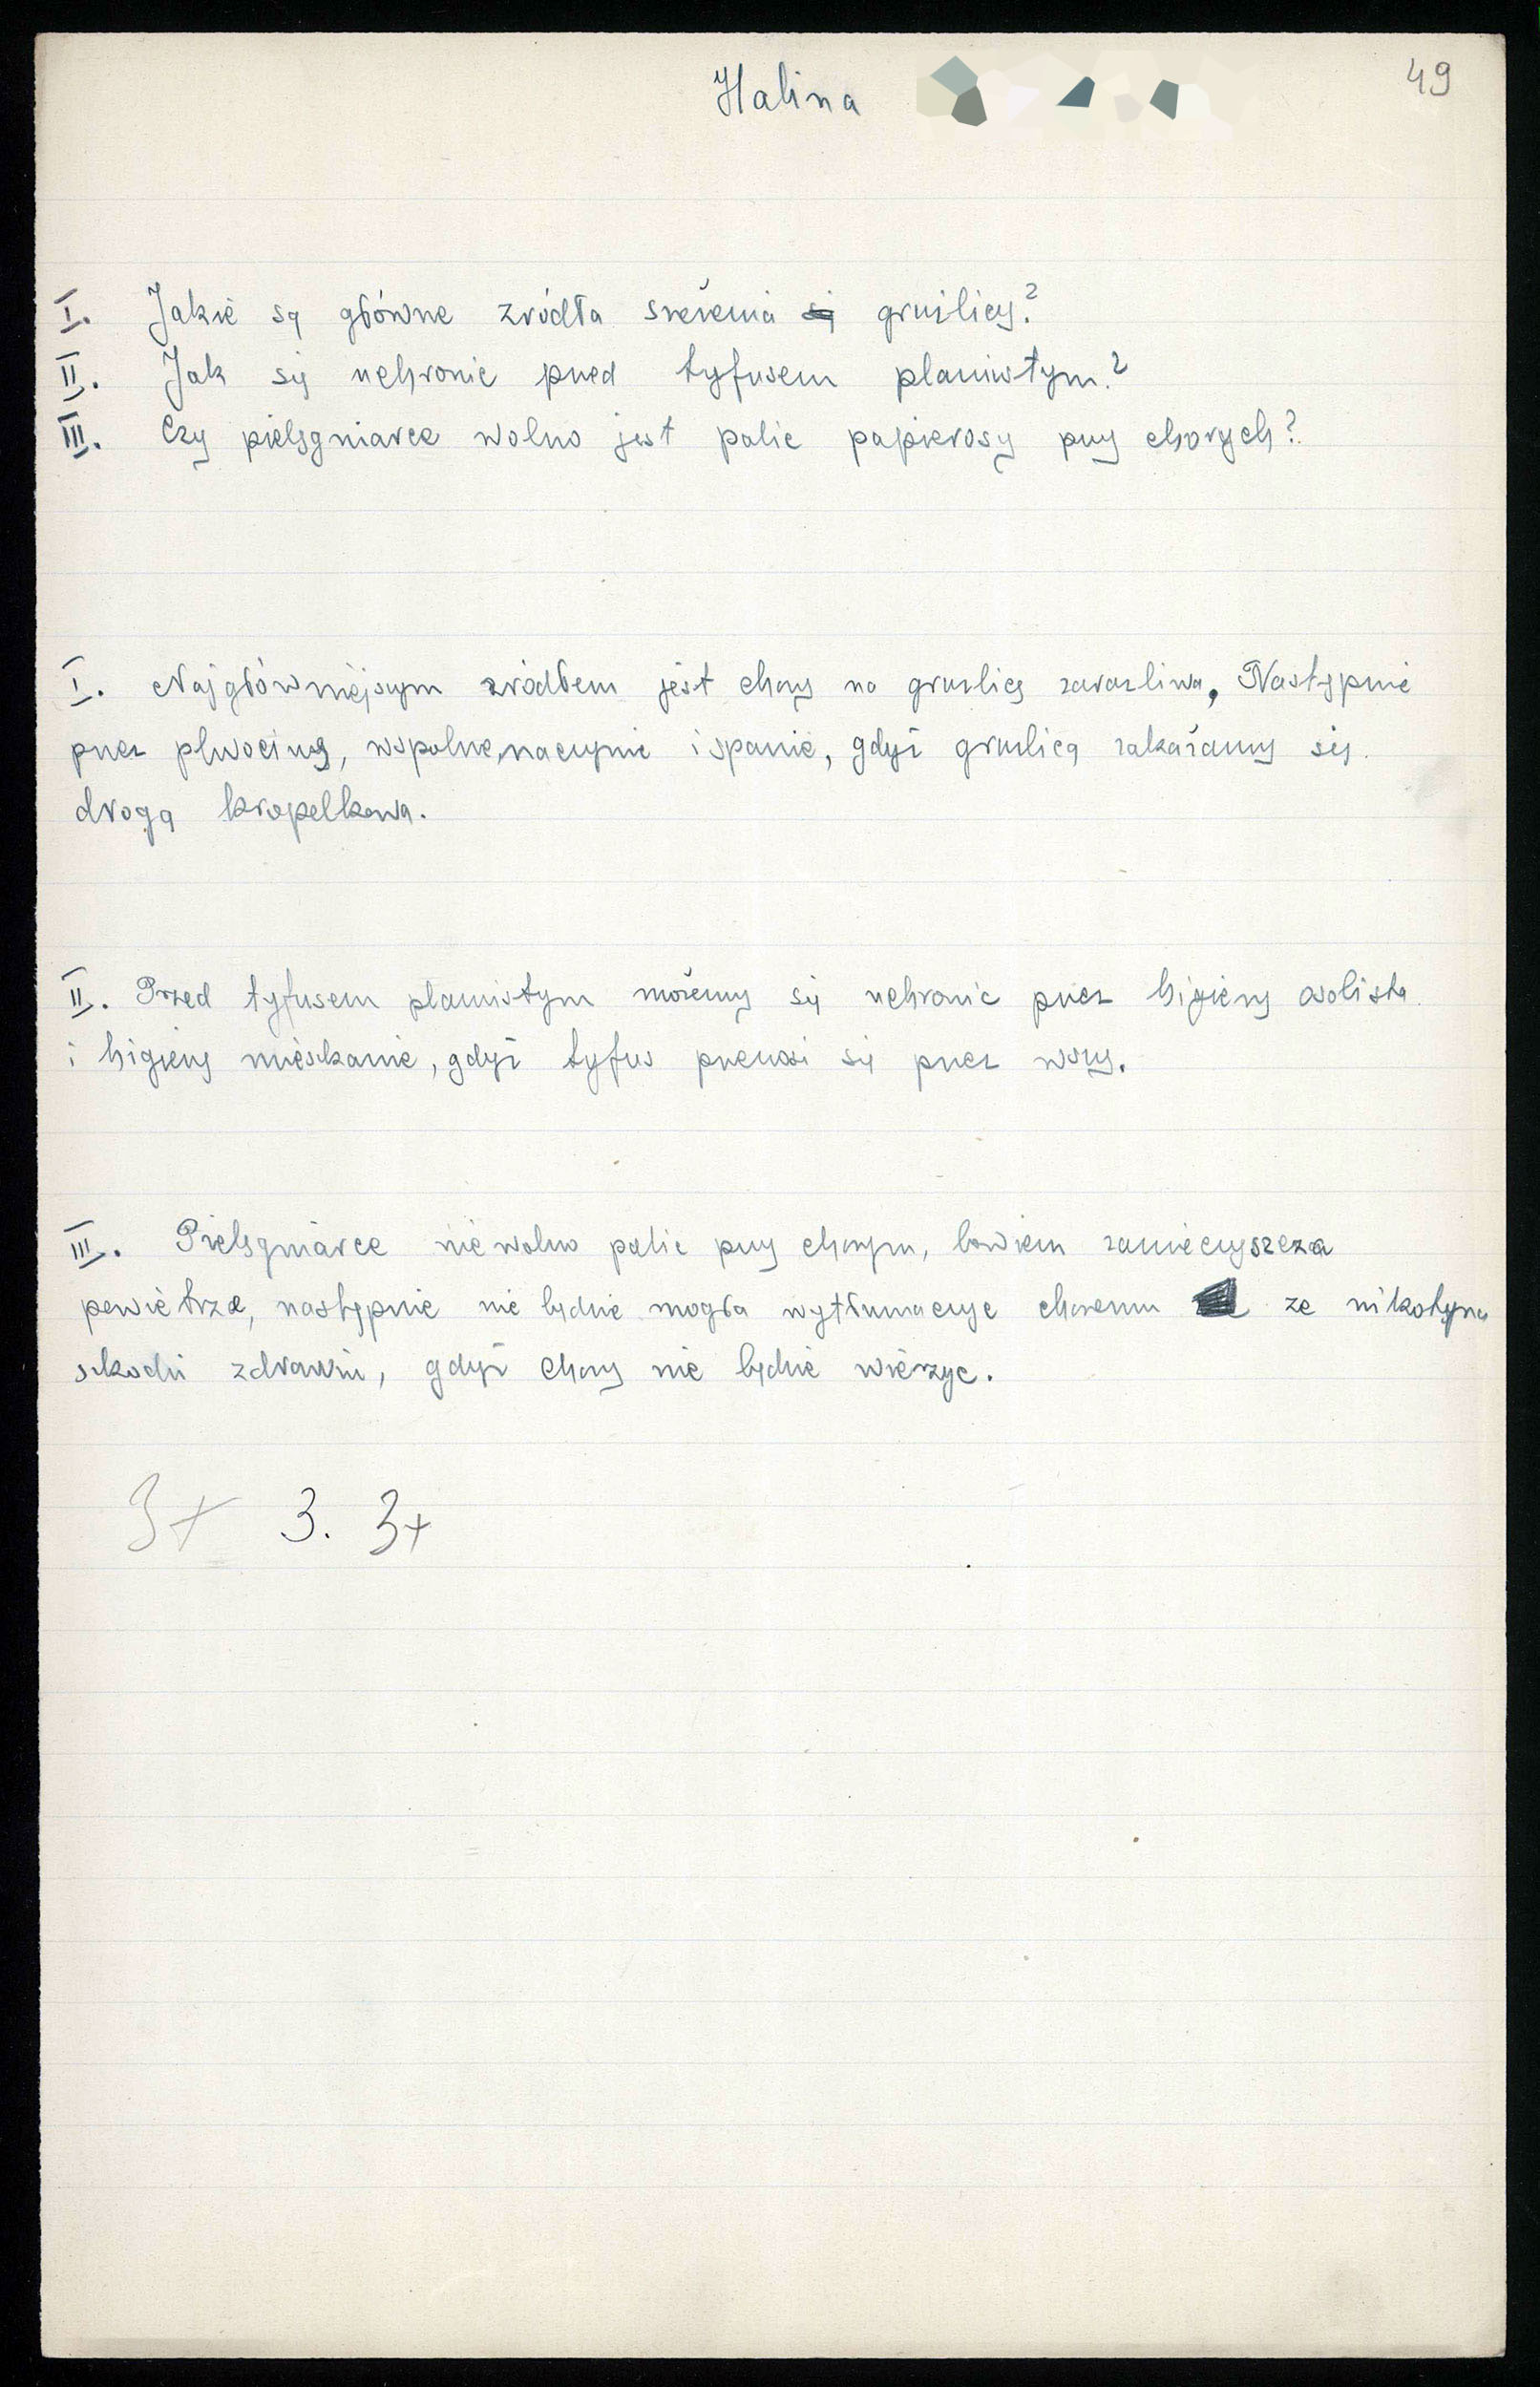 Halina
49
I. Jakie są główne zródła szeżenia <s>się</s> gruźlicy?
II. Jak się uchronić przed tyfusem plamistym?
III. Czy pielęgniarce wolno jest palic papierosy przy chorych?
I. Najgłówniejszym zródłem jest chory na gruzlicę zarazliwa. Następnie
przez plwociny, wspolne naczynie i spanie, gdyż gruzlicą zakażamy się
drogą kropelkowa.
II. Przed tyfusem plamistym możemy się uchronic przez higienę osolista
i higienę mieszkanie, gdyż tyfus przenosi się przez wszy.
III. Pielęgniarce nie wolno palic przy chorym, bowiem zanieczyszcza
powietrze, następnie nie będzie mogła wytłumaczyc choremu ze nikotyna
szkodzi zdrowiu, gdyż chory nie będzie wierzyc.
3+ 3. 3+